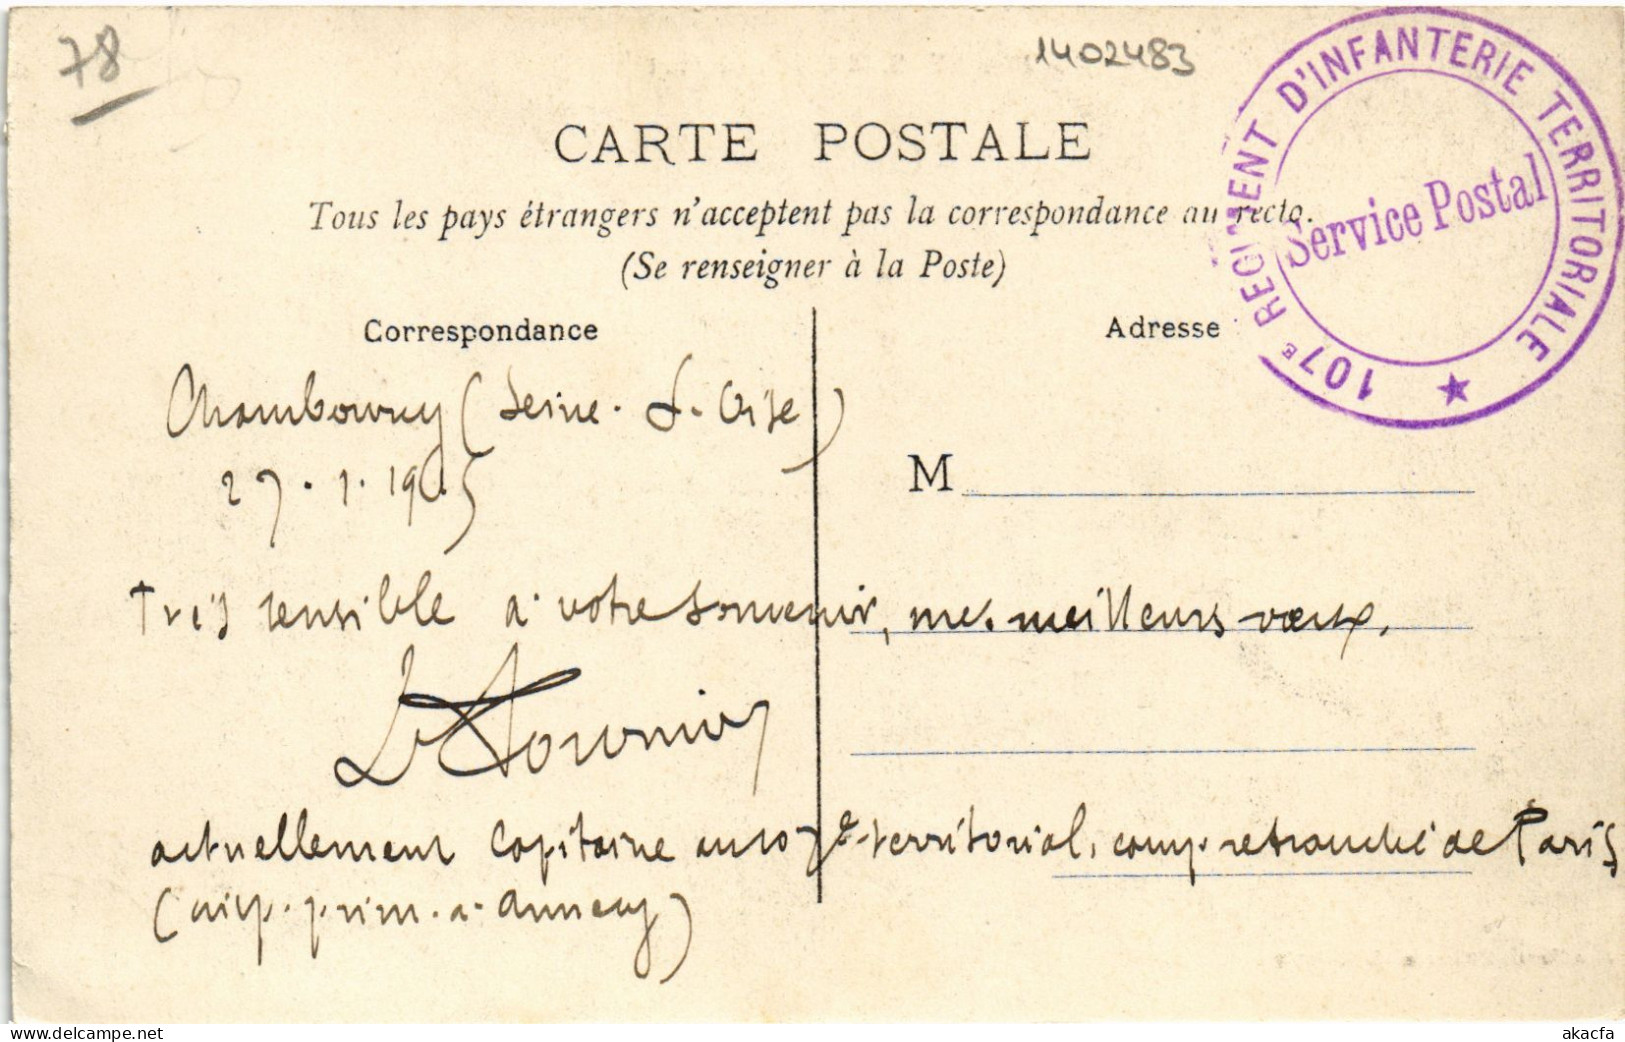 78
1402483
107E REGIMENT D'INFANTERIE TERRITORIALE
Service Postal
CARTE POSTALE
Tous les pays étrangers n'acceptent pas la correspondance au recto.
(Se renseigner à la Poste)
Correspondance
Adresse
Chambourcy (Seine-&-Oise)
27.1.1915
M
Très sensible à votre souvenir, mes meilleurs vœux.
Fournier
actuellement Capitaine au 107e territorial, camp retranché de Paris
(insp. prim. à Annecy)
www.delcampe.net
akacfa